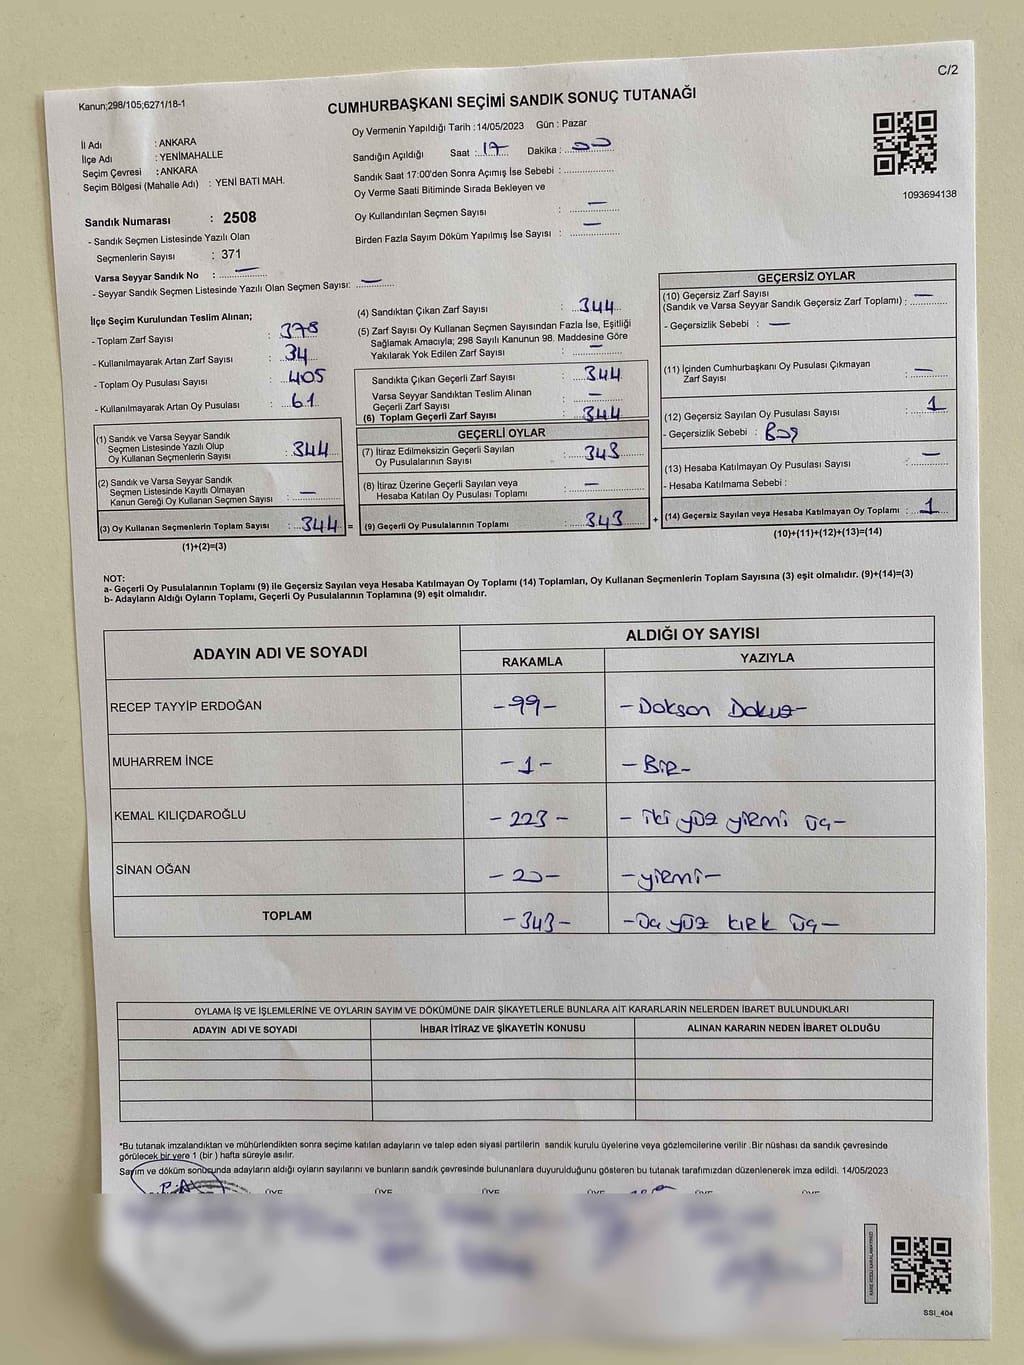 C/2
Kanun;298/105;6271/18-1
CUMHURBAŞKANI SEÇİMİ SANDIK SONUÇ TUTANAĞI
İl Adı : ANKARA
İlçe Adı : YENİMAHALLE
Seçim Çevresi : ANKARA
Seçim Bölgesi (Mahalle Adı) : YENİ BATI MAH.
Sandık Numarası : 2508
- Sandık Seçmen Listesinde Yazılı Olan
Seçmenlerin Sayısı : 371
Varsa Seyyar Sandık No : —
- Seyyar Sandık Seçmen Listesinde Yazılı Olan Seçmen Sayısı: —
Oy Vermenin Yapıldığı Tarih :14/05/2023 Gün : Pazar
Sandığın Açıldığı Saat : 17 Dakika : 00
Sandık Saat 17:00'den Sonra Açımış İse Sebebi :
Oy Verme Saati Bitiminde Sırada Bekleyen ve
Oy Kullandırılan Seçmen Sayısı : —
Birden Fazla Sayım Döküm Yapılmış İse Sayısı : —
1093694138
İlçe Seçim Kurulundan Teslim Alınan;
- Toplam Zarf Sayısı : 378
- Kullanılmayarak Artan Zarf Sayısı : 34
- Toplam Oy Pusulası Sayısı : 405
- Kullanılmayarak Artan Oy Pusulası : 61
(1) Sandık ve Varsa Seyyar Sandık
Seçmen Listesinde Yazılı Olup
Oy Kullanan Seçmenlerin Sayısı : 344
(2) Sandık ve Varsa Seyyar Sandık
Seçmen Listesinde Kayıtlı Olmayan
Kanun Gereği Oy Kullanan Seçmen Sayısı : —
(3) Oy Kullanan Seçmenlerin Toplam Sayısı : 344 =
(1)+(2)=(3)
(4) Sandıktan Çıkan Zarf Sayısı : 344
(5) Zarf Sayısı Oy Kullanan Seçmen Sayısından Fazla İse, Eşitliği
Sağlamak Amacıyla; 298 Sayılı Kanunun 98. Maddesine Göre
Yakılarak Yok Edilen Zarf Sayısı : —
Sandıkta Çıkan Geçerli Zarf Sayısı : 344
Varsa Seyyar Sandıktan Teslim Alınan
Geçerli Zarf Sayısı : —
(6) Toplam Geçerli Zarf Sayısı : 344
GEÇERLİ OYLAR
(7) İtiraz Edilmeksizin Geçerli Sayılan
Oy Pusulalarının Sayısı : 343
(8) İtiraz Üzerine Geçerli Sayılan veya
Hesaba Katılan Oy Pusulası Toplamı : —
(9) Geçerli Oy Pusulalarının Toplamı : 343 +
GEÇERSİZ OYLAR
(10) Geçersiz Zarf Sayısı
(Sandık ve Varsa Seyyar Sandık Geçersiz Zarf Toplamı) : —
- Geçersizlik Sebebi : —
(11) İçinden Cumhurbaşkanı Oy Pusulası Çıkmayan
Zarf Sayısı : —
(12) Geçersiz Sayılan Oy Pusulası Sayısı : 1
- Geçersizlik Sebebi : Boş
(13) Hesaba Katılmayan Oy Pusulası Sayısı : —
- Hesaba Katılmama Sebebi :
(14) Geçersiz Sayılan veya Hesaba Katılmayan Oy Toplamı : 1
(10)+(11)+(12)+(13)=(14)
NOT:
a- Geçerli Oy Pusulalarının Toplamı (9) ile Geçersiz Sayılan veya Hesaba Katılmayan Oy Toplamı (14) Toplamları, Oy Kullanan Seçmenlerin Toplam Sayısına (3) eşit olmalıdır. (9)+(14)=(3)
b- Adayların Aldığı Oyların Toplamı, Geçerli Oy Pusulalarının Toplamına (9) eşit olmalıdır.
ADAYIN ADI VE SOYADI ALDIĞI OY SAYISI
RAKAMLA YAZIYLA
RECEP TAYYİP ERDOĞAN -99- -Doksan Dokuz-
MUHARREM İNCE -1- -Bir-
KEMAL KILIÇDAROĞLU -223- -iki yüz yirmi üç-
SİNAN OĞAN -20- -yirmi-
TOPLAM -343- -Üç yüz kırk üç-
OYLAMA İŞ VE İŞLEMLERİNE VE OYLARIN SAYIM VE DÖKÜMÜNE DAİR ŞİKAYETLERLE BUNLARA AİT KARARLARIN NELERDEN İBARET BULUNDUKLARI
ADAYIN ADI VE SOYADI İHBAR İTİRAZ VE ŞİKAYETİN KONUSU ALINAN KARARIN NEDEN İBARET OLDUĞU
*Bu tutanak imzalandıktan ve mühürlendikten sonra seçime katılan adayların ve talep eden siyasi partilerin sandık kurulu üyelerine veya gözlemcilerine verilir .Bir nüshası da sandık çevresinde
görülecek bir yere 1 (bir ) hafta süreyle asılır.
Sayım ve döküm sonucunda adayların aldığı oyların sayılarını ve bunların sandık çevresinde bulunanlara duyurulduğunu gösteren bu tutanak tarafımızdan düzenlenerek imza edildi. 14/05/2023
ÜYE ÜYE ÜYE ÜYE ÜYE ÜYE
SSI_404